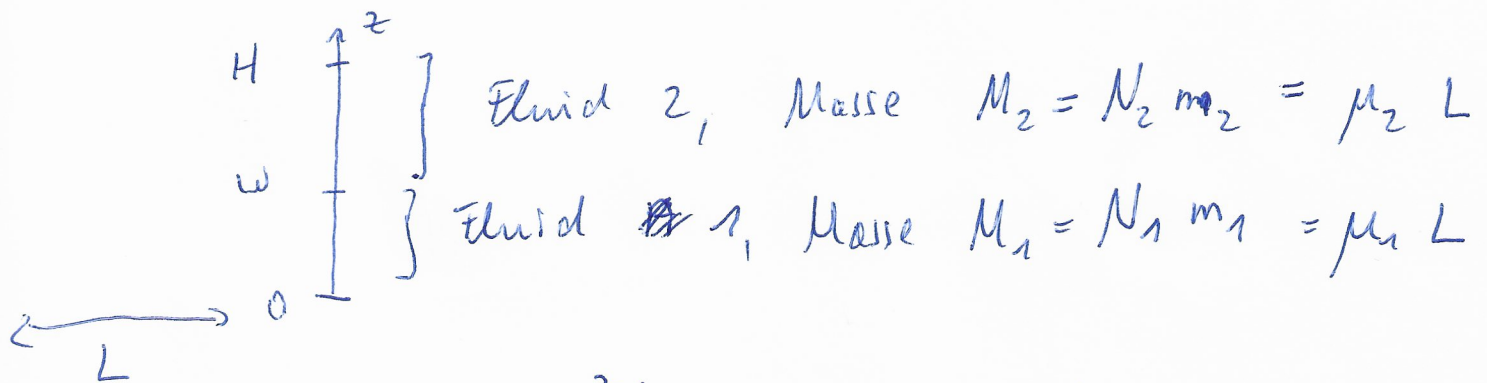 z
H
Fluid 2, Masse M₂ = N₂ m₂ = μ₂ L
w
Fluid 1, Masse M₁ = N₁ m₁ = μ₁ L
0
L